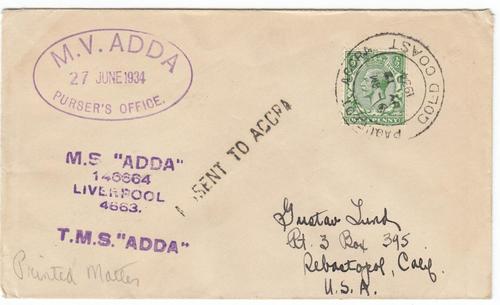 M.V. ADDA
27 JUNE 1934
PURSER'S OFFICE.
ACCRA
GOLD COAST
HALFPENNY
SENT TO ACCRA
M.S. "ADDA"
146664
LIVERPOOL
4663.
T.M.S. "ADDA"
Printed Matter
Gustav Lund
Rt. 3 Box 395
Sebastopol, Calif.
U.S.A.